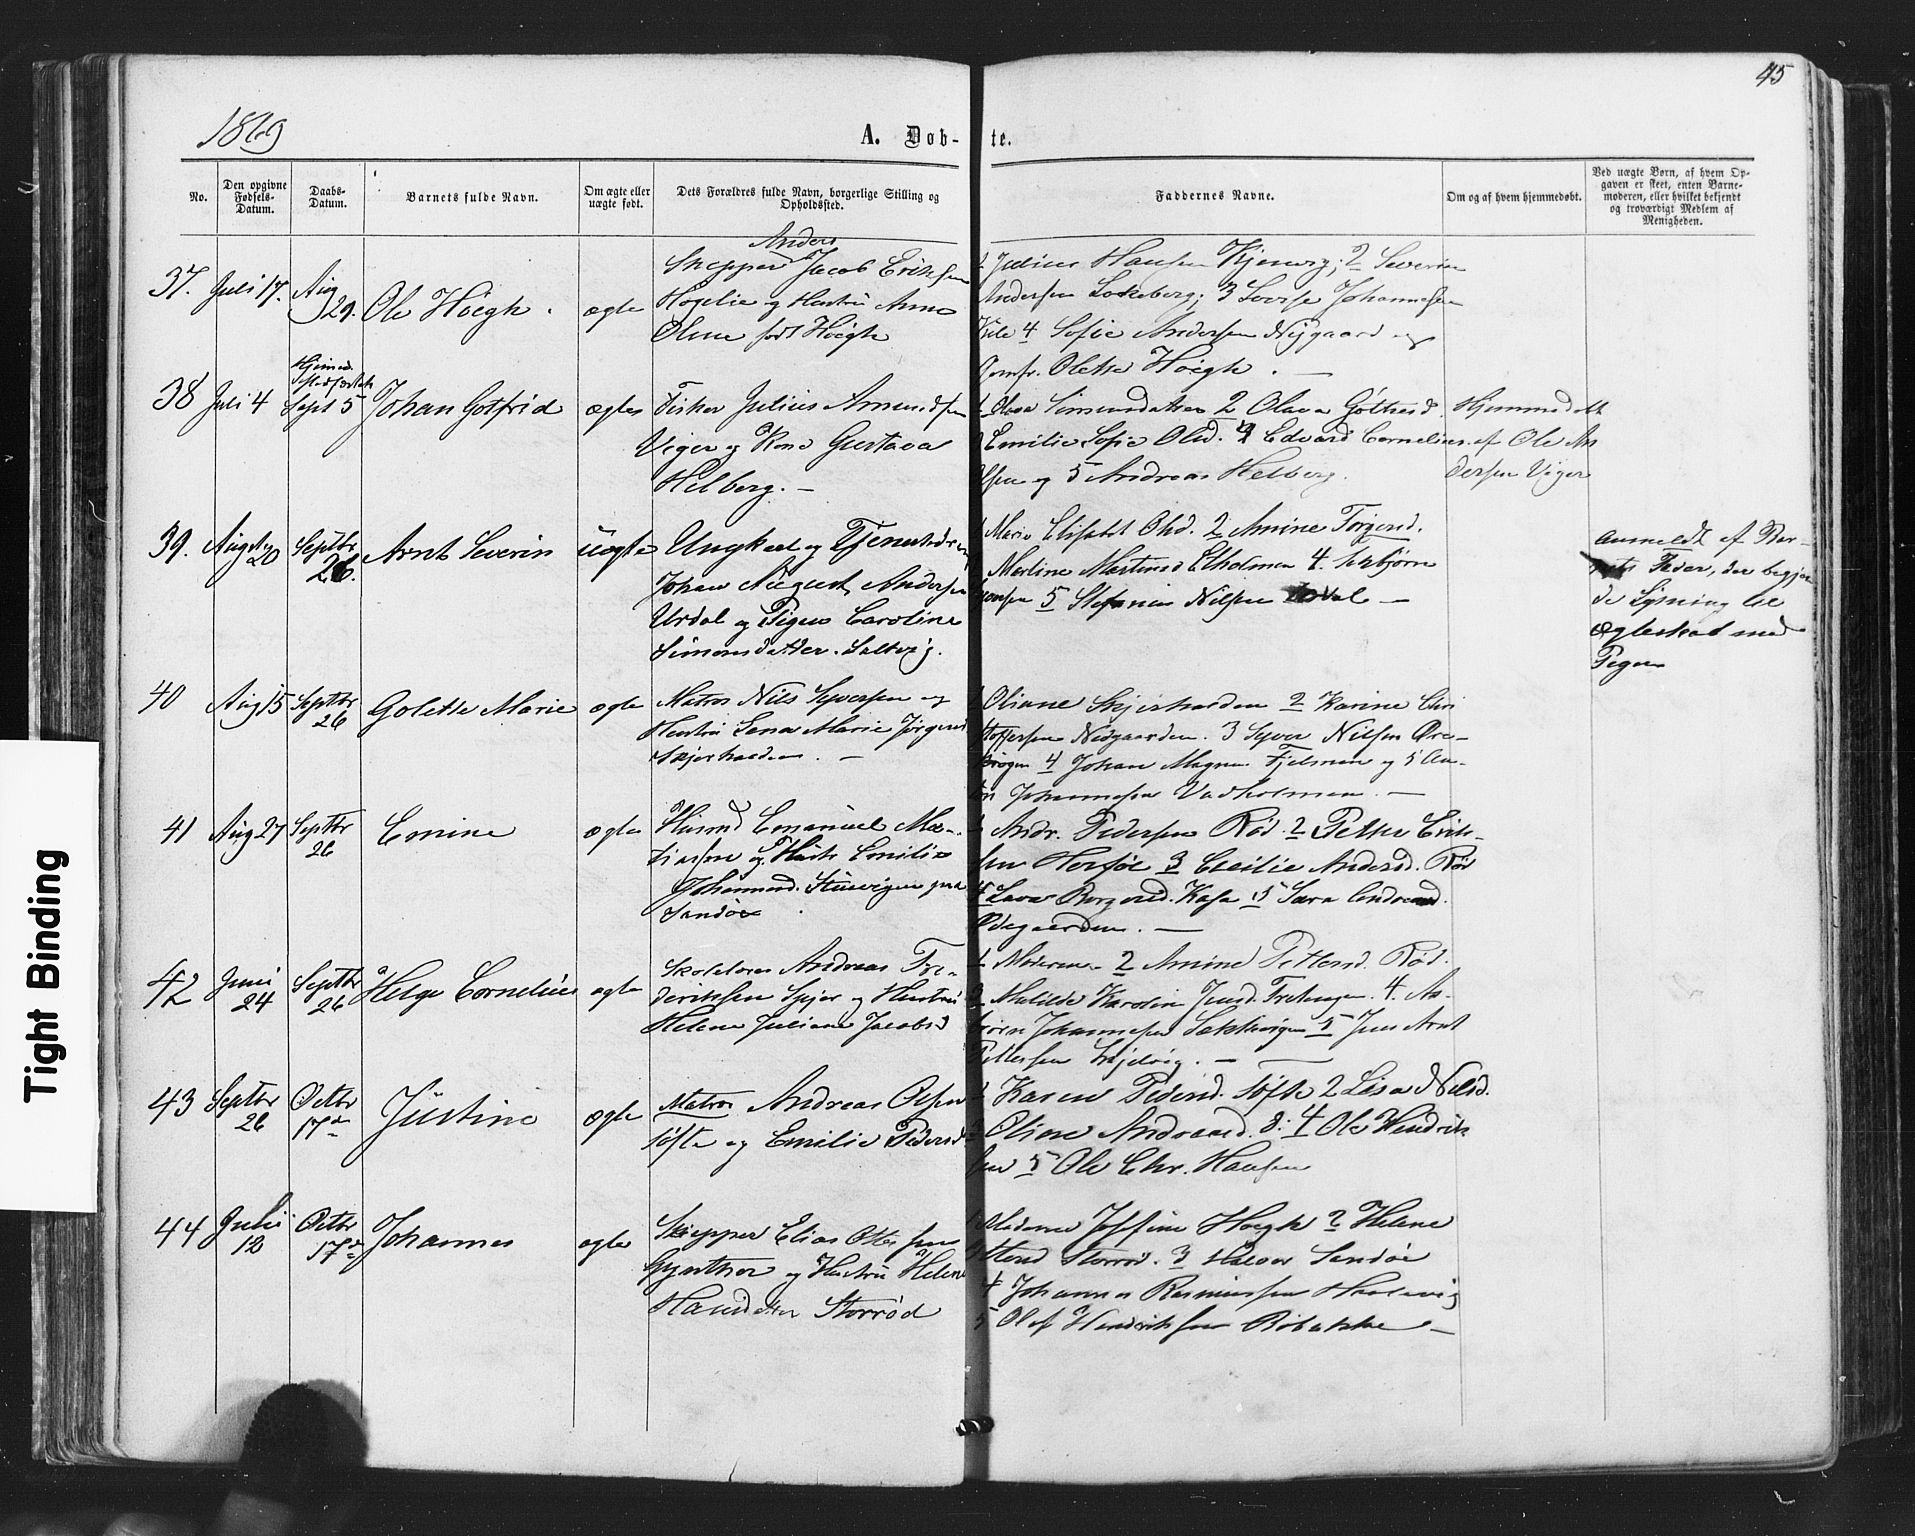 45
1869
A. Døb-
te.
No.
Den opgivne Fødsels-Datum.
Daabs-Datum.
Barnets fulde Navn.
Om ægte eller uægte født.
Dets Forældres fulde Navn, borgerlige Stilling og Opholdssted.
Faddernes Navne.
Om og af hvem hjemmedøbt.
Ved uægte Børn, af hvem Opgaven er skeet, enten Barnemoderen, eller hvilket bekjendt og troværdigt Medlem af Menigheden.
37. Juli 17. Aug 29. Ole Höegh. ægte
Anders
Skipper Jacob Eriksen
og Hustru Anne
Oline født Höegh
1 Julius Hansen Kjenvig; 2 Severin
Andersen Lokeberg; 3 Lovise Johannesen
4 Sofie Andersen Nygaard og
Jomfr. Olette Höegh. —
38 Juli 4 Sept 5 Johan Gotfrid ægte
Fisker Julius Amundsen
Viger og Kone Gustava
Helberg. —
Simensdatter 2 Olava
Emilie Sofie Olsd. 4 Edvard Cornelius
og 5 Andreas Helberg.
Hjemmedøbt
af Ole An
dersen Viger
39. August 20 Septbr 26. Arnt Severin uægte
Ungkarl og
Johan August Andersen
Urdal og Pigen Caroline
Simonsdatter. Saltvig.
1 Marie Elisabet Olsd. 2 Amine Torgersd.
Martine Martinsd Elholmen 4.
5 Stefanius Nilsen —
anmeldt af Bar-
nets Fader, der begjæ
de Lysning til
Ægteskab med
Pigen
40 Aug 15 Septbr 26 Golette Marie ægte
Matros Nils Syversen og
Hustru Lena Marie Jörgensd
Skjærhalden. —
Oliane Skjærhalden 2 Karine Chri
stoffersen Nedgaarden. 3 Syver Nilsen Øre-
krogen 4 Johan Magnus Fjelsmen og 5 An-
ton Johannesen Vadholmen. —
41 Aug 27 Septbr 26 Emine ægte
Husmd Emanuel Ma-
tiassen og Hustr Emilie
Johannesd. Stuevigen paa
Sandöe.
Andr. Pedersen Röd. 2 Petter Erik-
sen Herföe 3 Cecilie Andersd. Röd
4 Lava Borgersd. Kasa 5 Sara Andreasd.
Ödegaarden. —
42 Juni 24 Septbr 26 Helge Cornelius ægte
Skolelærer Andreas Fre-
deriksen Spjær og Hustru
Helene Juliane Jacobsd
1 Moderen 2 Amine Pettersd. Röd.
Matilde Karoline Jensd. 4. As-
björn Johannesen 5 Jens Arnt
Pettersen. —
43 Septbr 26 Octbr 17de Jüstine ægte
Matros Andreas Olsen
Töfte og Emilie Pedersd
1 Karen Pedersd. Töfte 2 Lisa Nilsd.
Oline Andreasd. 4 Ole Hendrik
sen 5 Ole Chr. Hansen
44 Juli 12 Octbr 17de Johannes ægte
Skipper Elias Ottersen
og Hustru Helene
Hansdatter Storröd
Madame Josefine Höegh 2 Helene
Storröd. 3 Halvor Sandöe
4 Johannes Rasmussen
5 Olaf Hendriksen Röbakke —
Tight Binding